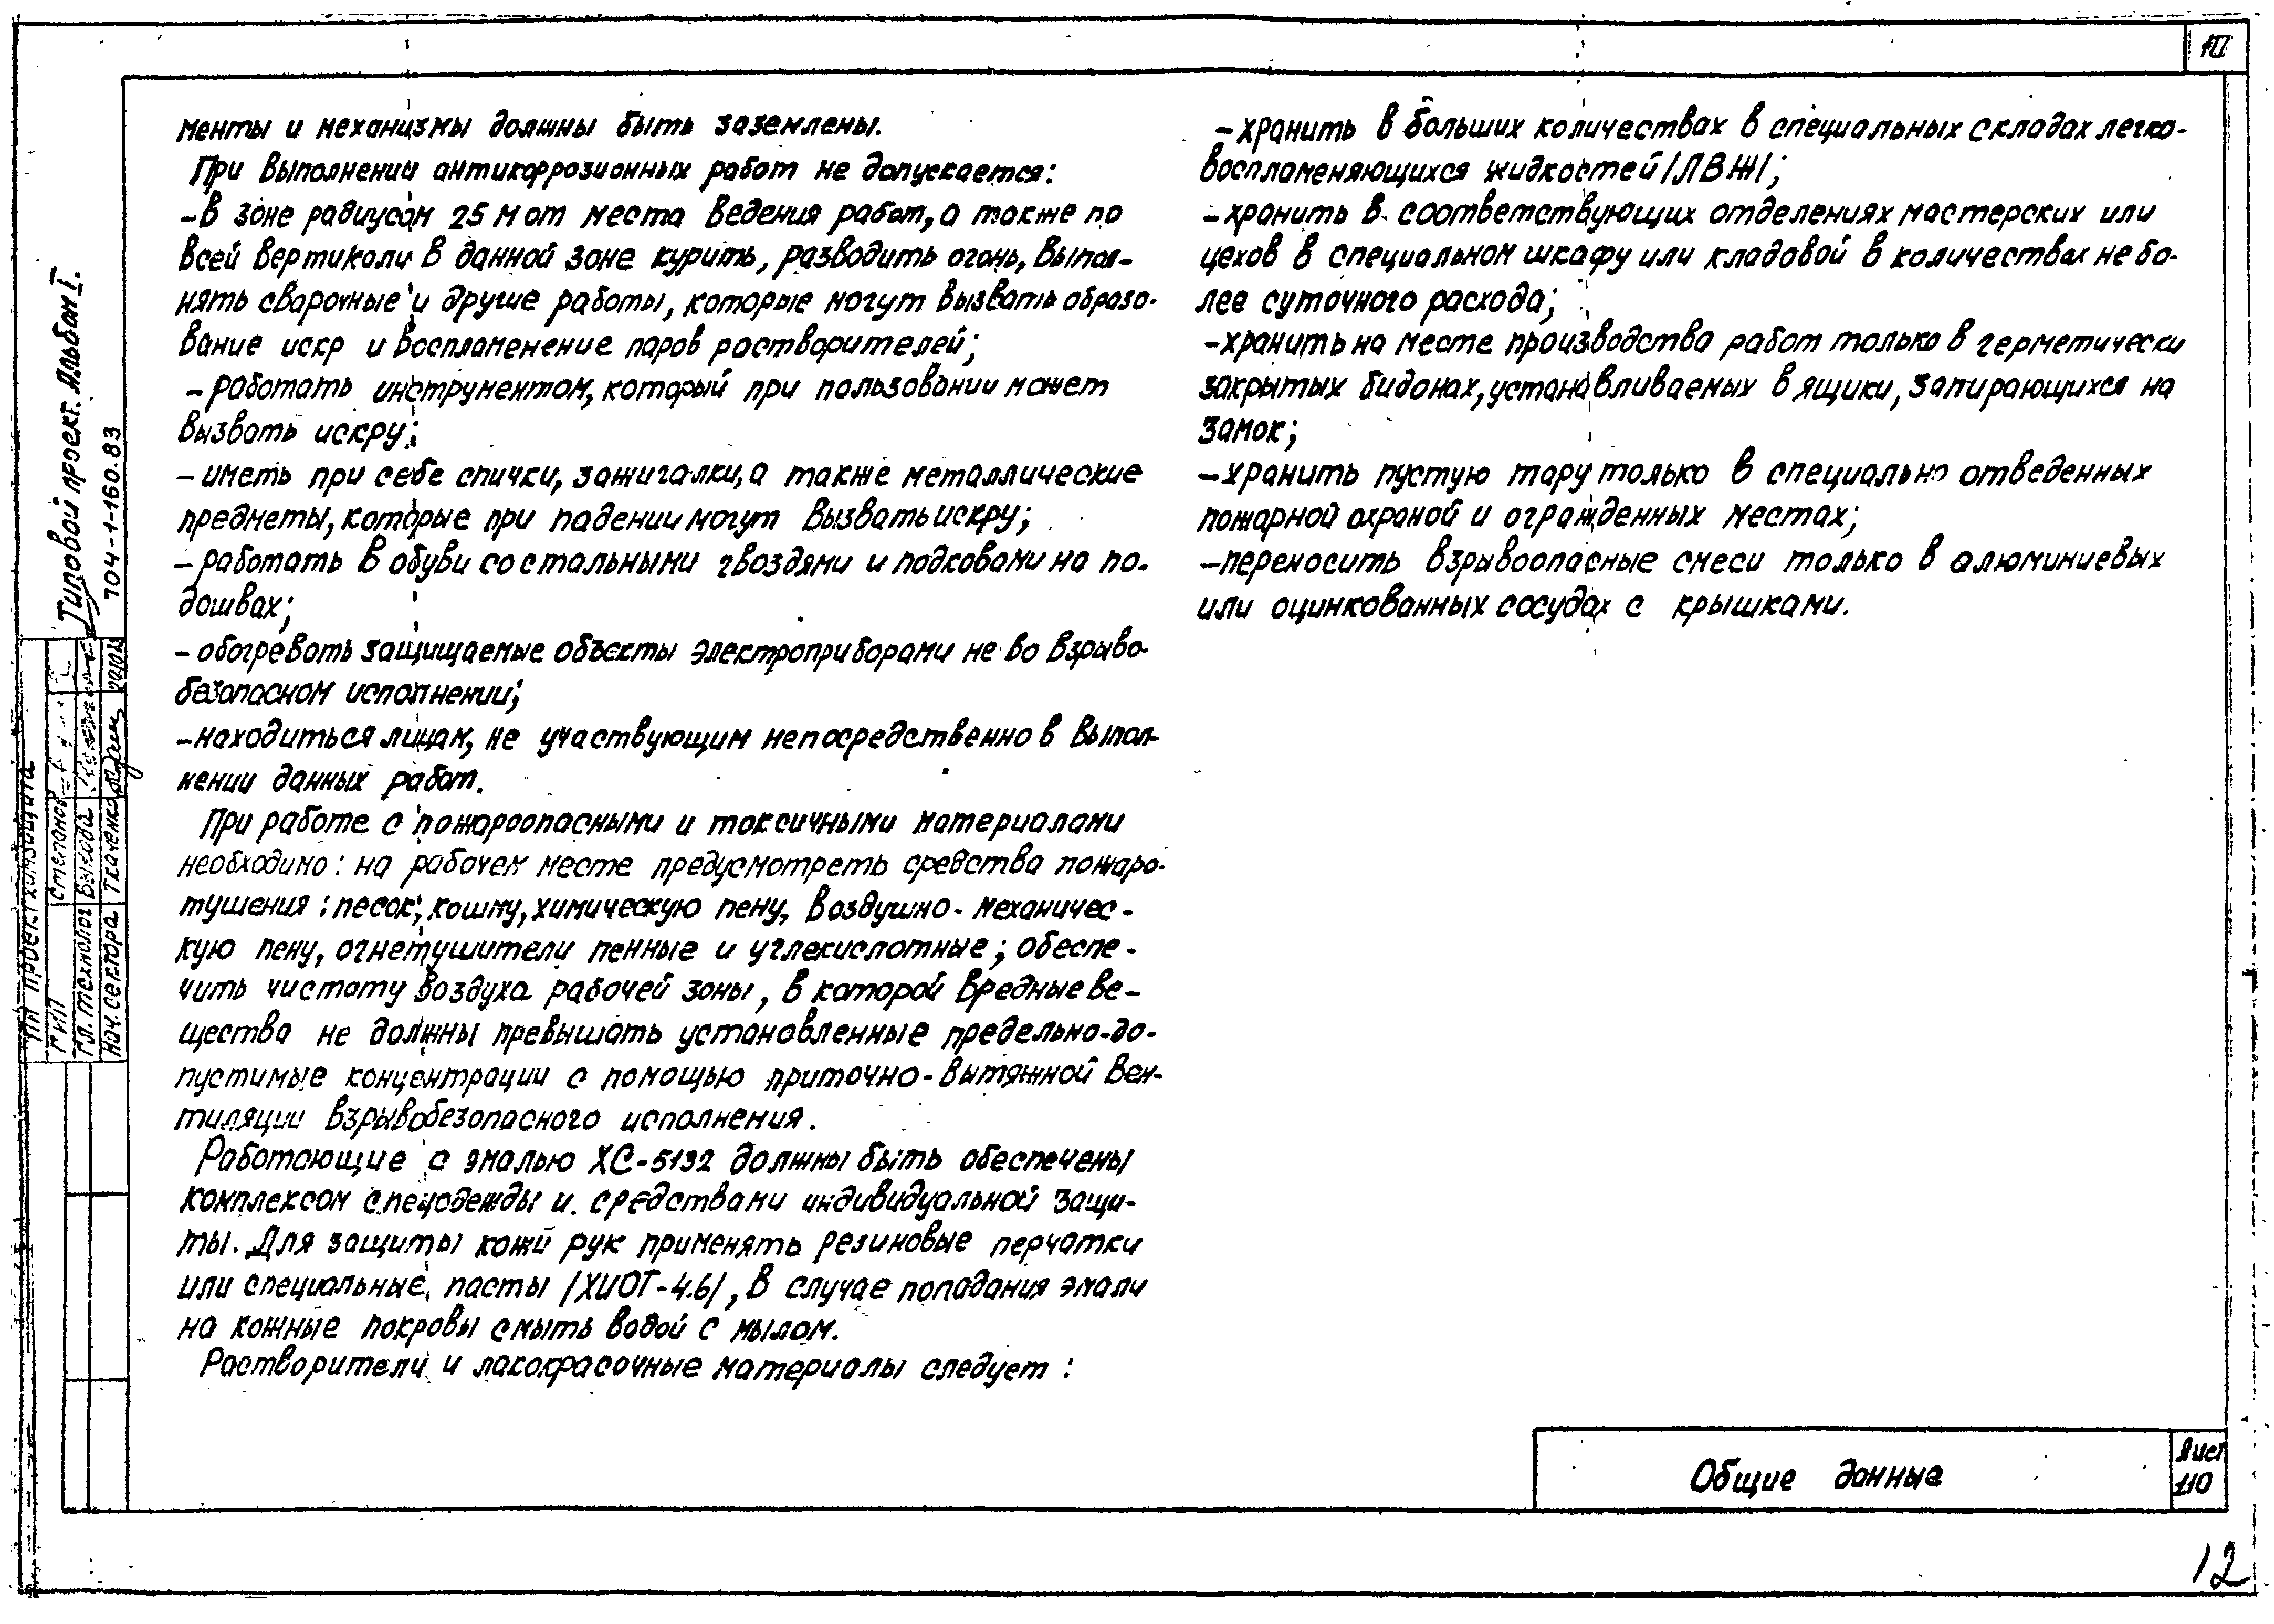 менты и механизмы должны быть заземлены.
При выполнении антикоррозионных работ не допускается:
-в зоне радиусом 25 м от места ведения работ, а также по
всей вертикали в данной зоне курить, разводить огонь, выпол-
нять сварочные и другие работы, которые могут вызвать образо-
вание искр и воспламенение паров растворителей;
-работать инструментом, который при пользовании может
вызвать искру;
-иметь при себе спички, зажигалки, а также металлические
предметы, которые при падении могут вызвать искру;
-работать в обуви со стальными гвоздями и подковами на по-
дошвах;
-обогревать защищаемые объекты электроприборами не во взрыво-
безопасном исполнении;
-находиться лицам, не участвующим непосредственно в выпол-
нении данных работ.
При работе с пожароопасными и токсичными материалами
необходимо: на рабочем месте предусмотреть средства пожаро-
тушения: песок, кошму, химическую пену, воздушно-механичес-
кую пену, огнетушители пенные и углекислотные; обеспе-
чить чистоту воздуха рабочей зоны, в которой вредные ве-
щества не должны превышать установленные предельно-до-
пустимые концентрации с помощью приточно-вытяжной вен-
тиляции взрывобезопасного исполнения.
Работающие с эмалью ХС-5132 должны быть обеспечены
комплексом спецодежды и средствами индивидуальной защи-
ты. Для защиты кожи рук применять резиновые перчатки
или специальные пасты /ХИОТ-4.6/, в случае попадания эмали
на кожные покровы смыть водой с мылом.
Растворители и лакокрасочные материалы следует:
-хранить в больших количествах в специальных складах легко-
воспламеняющихся жидкостей /ЛВЖ/;
-хранить в соответствующих отделениях мастерских или
цехов в специальном шкафу или кладовой в количествах не бо-
лее суточного расхода;
-хранить на месте производства работ только в герметически
закрытых бидонах, устанавливаемых в ящики, запирающихся на
замок;
-хранить пустую тару только в специально отведенных
пожарной охраной и огражденных местах;
-переносить взрывоопасные смеси только в алюминиевых
или оцинкованных сосудах с крышками.
Типовой проект. Альбом I.
704-1-160.83
ПИ Проектхимзащита
ГИП Степанов
Гл. технолог Быкова
Нач. сектора Ткаченко
Общие данные
Лист
110
12